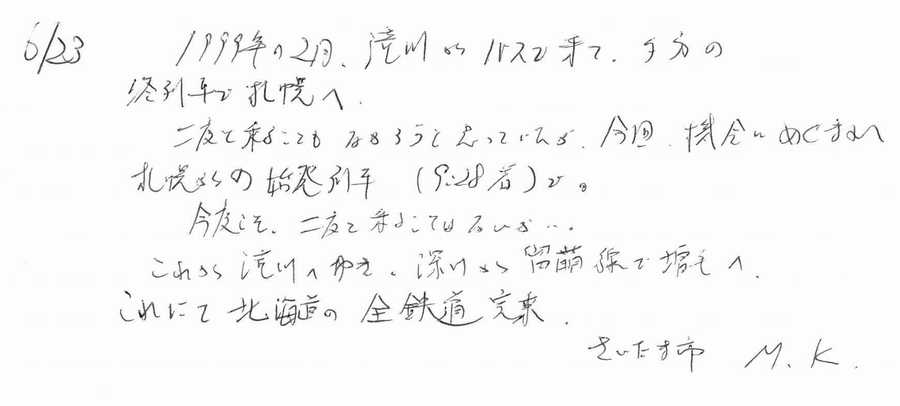 6/23 1999年の2月、滝川からバスで来て、夕方の
終列車で札幌へ.
二度と来ることもなかろうと思っていたが、今回、機会にめぐまれ
札幌からの始発列車 (9:28着)で。
今度こそ、二度と来ることはないが…
これから滝川へ出て、深川から留萌線で増毛へ.
これにて北海道の全鉄道完乗.
さいたま市 M.K.